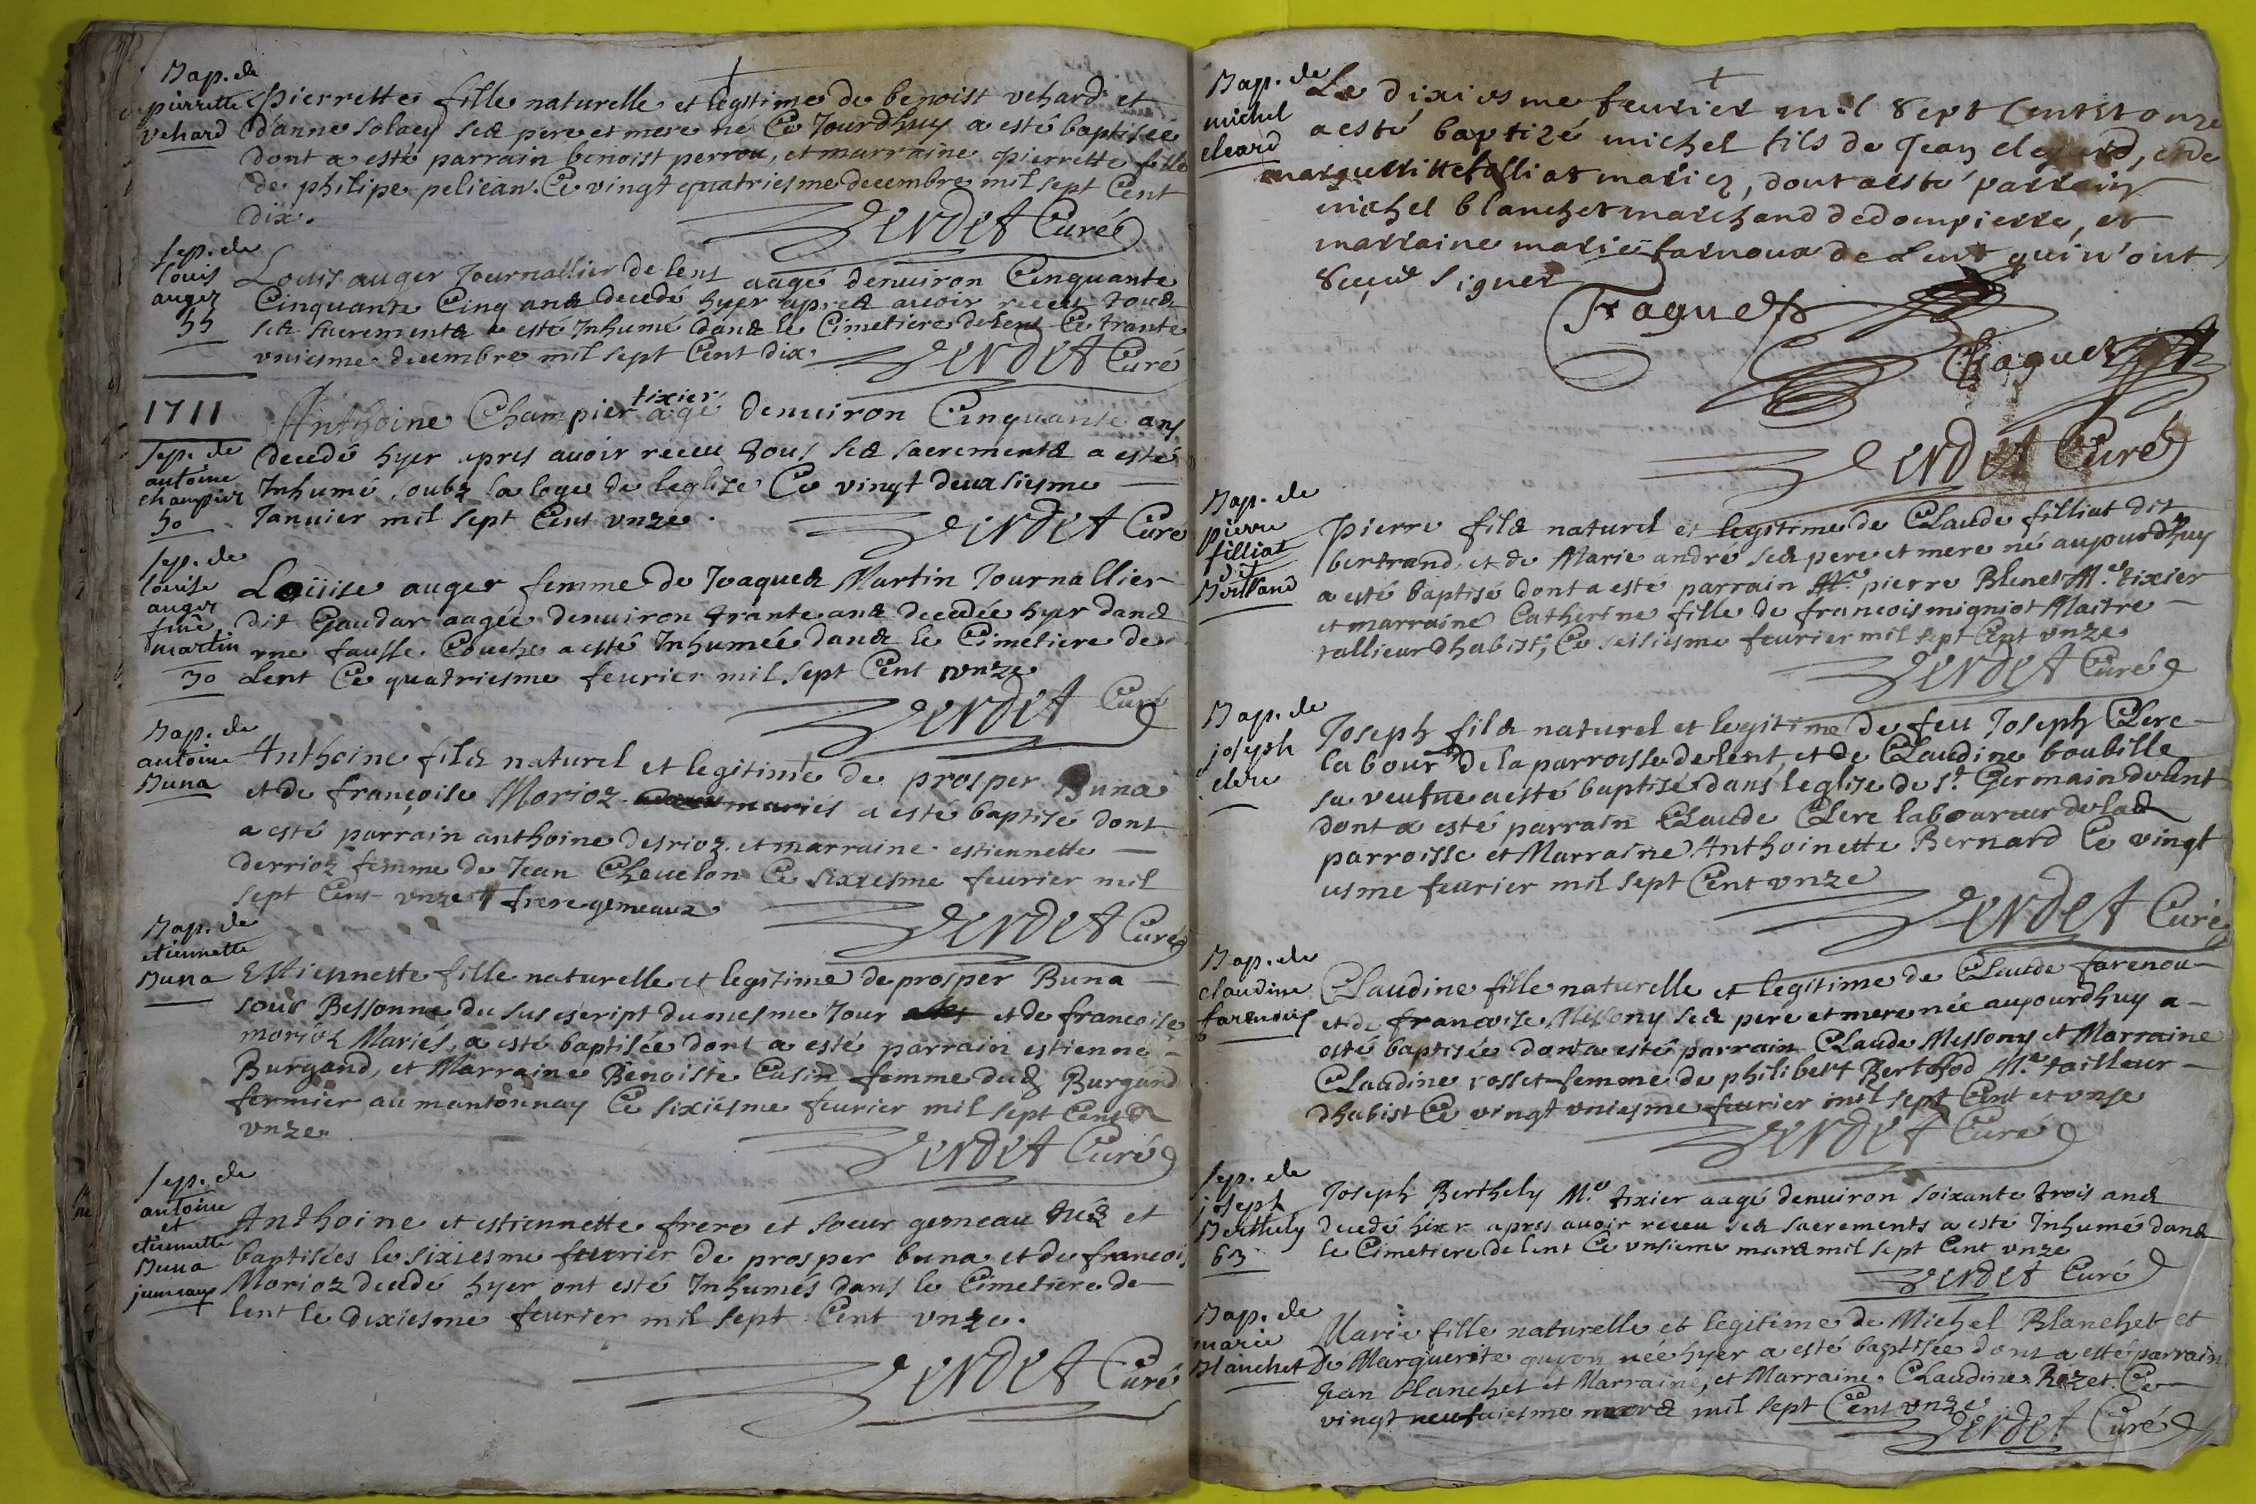 Bap. de
pierrette
vehard
Pierrette fille naturelle et legitime de benoist vehard et
d'anne solaey ses pere et mere né Ce Jourdhuy a esté baptisée
dont a esté parrain benoist perrou, et marraine pierrette fille
de philipe pelican. Ce vingt quatriesme decembre mil sept Cent
dix.
Verdet Curé
sep. de
louis
auger
55
Louis auger Journallier de lent aagé denuiron Cinquante
Cinquante Cinq ans decedé hyer apres auoir receu tous
ses sacrements a esté Inhumé dans le Cimetiere de lent Ce trante
vniesme decembre mil sept Cent dix.
Verdet Curé
1711
sep. de
antoine
champier
50
tixier
Anthoine Champier agé denuiron Cinquante ans
decedé hyer apres auoir receu tous ses sacrements a esté
Inhumé soubz la loge de leglize Ce vingt deuxsiesme
Januier mil sept Cent vnze.
Verdet Curé
sep. de
louise
auger
fme
martin
30
Loüise auger femme de Jaques Martin Journallier
dit Gaudar aagée denuiron trante ans decedée hyer dans
vne fausse Couche a esté Inhumée dans le Cimetiere de
Lent Ce quatriesme feurier mil sept Cent vnze
Verdet Curé
Bap. de
antoine
Buna
Anthoine fils naturel et legitime de prosper Buna
et de françoise Morioz mariés a esté baptisé dont
a esté parrain anthoine desrioz et marraine estiennette
derrioz femme de Jean Cheuelon Ce sixiesme feurier mil
sept Cent vnze frere gemeaux
Verdet Curé
Bap. de
etiennette
Buna
Estiennette fille naturelle et legitime de prosper Buna
sour Bessonne du suscript du mesme Jour et de francoise
morioz Mariés, a esté baptisée dont a esté parrain estienne
Burgand, et Marraine Benoiste Cusin femme dud Burgand
fermier au mantonnay Ce sixiésme feurier mil sept Cent
vnze.
Verdet Curé
sep. de
antoine
et
etiennette
Buna
jumeaux
Anthoine et estiennette frere et soeur gemeau nés et
baptisées le sixiesme feurier de prosper buna et de francois
Morioz decedé hyer ont esté Inhumés dans le Cimetiere de
lent le dixiesme feurier mil sept Cent vnze.
Verdet Curé
Bap. de
michel
cleard
Le dixiesme feurier mil sept Cents et onze
a esté baptizé michel fils de Jean cleyard, et de
margueritte falliat mariez, dont a esté parrain
michel blanchet marchand de dompierre, et
marraine marie farnoux de Lent qui n'ont
sceu signer
Fraguet
Verdet Curé
Bap. de
pierre
filliat
dit
Bertrand
Pierre fils naturel et legitime de Claude filliat dit
bertrand, et de Marie andre ses pere et mere né aujourdhuy
a esté baptisé dont a esté parrain Me. pierre Blenet Me. tixier
et marraine Catherine fille de francois migniot Maitre
tallieur dhabist; Ce seisiesme feurier mil sept Cent vnze
Verdet Curé
Bap. de
joseph
clerc
Joseph fils naturel et legitime de feu Joseph Clerc
labour de la parroisse de lent, et de Claudine boubille
sa veufue a esté baptisé dans leglise de st. Germain de lent
dont a esté parrain Claude Clerc laboureur de lad
parroisse et Marraine Anthoinette Bernard Ce vingt
usme feurier mil sept Cent vnze
Verdet Curé
Bap. de
claudine
farenoux
Claudine fille naturelle et legitime de Claude farenou
et de francoise Messony ses pere et mere née aujourdhuy a
esté baptisée dont a esté parrain Claude Messony et Marraine
Claudine rosset femme de philibert Berthod Me. tailleur
dhabist Ce vingt vniesme feurier mil sept Cent et vnse
Verdet Curé
sep. de
joseph
Berthely
63
Joseph Berthely Me. tixier aagé denuiron soixante trois ans
decedé hixr apres auoir receu ses sacrements a esté Inhumé dans
le Cimetiere de lent Ce vnsieme mars mil sept Cent vnze
Verdet Curé
Bap. de
marie
blanchet
Marie fille naturelle et legitime de Michel Blanchet et
de Marguerite guyon née hyer a esté baptisée dont a esté parrain
Jean blanchet et Marraine, et Marraine Claudine Rozet Ce
vingt neufuiesme mars mil sept Cent vnze
Verdet Curé